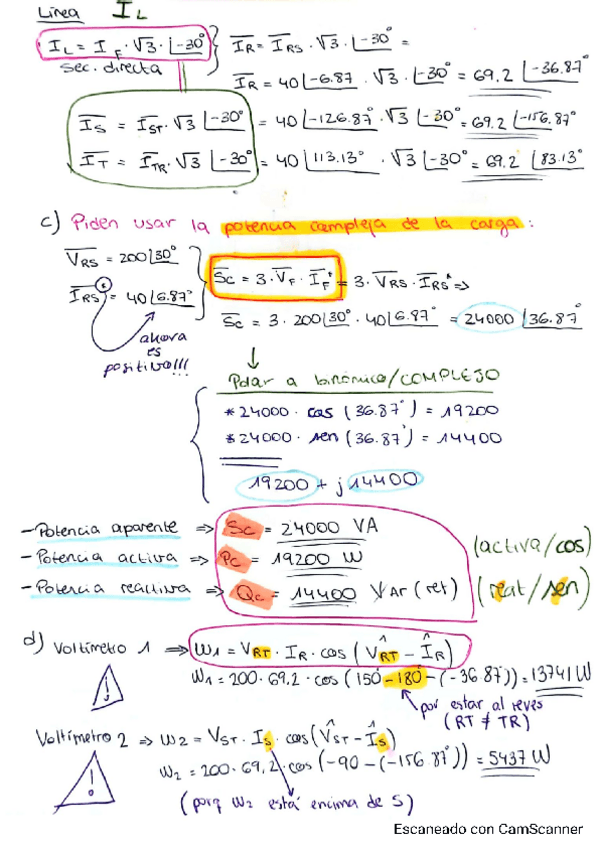 Línea I_L
I̅_L = I̅_F · √3 · ∠-30°
sec. directa
I̅_R = I̅_RS · √3 · ∠-30° =
I̅_R = 40∠-6.87 · √3 · ∠-30° = 69.2∠-36.87°
I̅_S = I̅_ST · √3 ∠-30° = 40∠-126.87° · √3 ∠-30° = 69.2∠-156.87°
I̅_T = I̅_TR · √3 ∠-30° = 40∠113.13° · √3 ∠-30° = 69.2∠83.13°
c) Piden usar la potencia compleja de la carga:
V̅_RS = 200∠30°
S̅c = 3 · V̅_F · I̅_F* = 3 · V̅_RS · I̅_RS* =>
I̅_RS* = 40∠6.87°
S̅c = 3 · 200∠30° · 40∠6.87° = 24000 ∠36.87°
ahora
es
positivo!!!
Polar a binómico/COMPLEJO
*24000 · cos (36.87°) = 19200
*24000 · sen (36.87°) = 14400
19200 + j14400
-Potencia aparente => Sc = 24000 VA
-Potencia activa => Pc = 19200 W
(activa/cos)
-Potencia reactiva => Qc = 14400 VAr (ret)
(reat/sen)
d) Voltímetro 1 => W1 = V_RT · I_R · cos (V̂_RT - Î_R)
W1 = 200 · 69.2 · cos (150-180-(-36.87)) = 13741 W
por estar al revés
(RT ≠ TR)
Voltímetro 2 => W2 = V_ST · I_S · cos(V̂_ST - Î_S)
W2 = 200 · 69,2 · cos (-90 - (-156.87°)) = 5437 W
(porq W2 está encima de S)
Escaneado con CamScanner